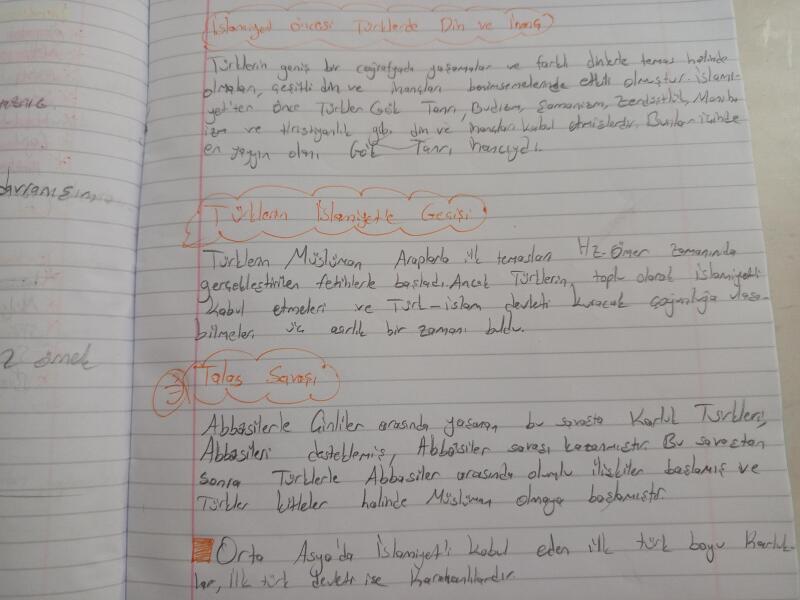 İslamiyet Öncesi Türklerde Din ve İnanç
Türklerin geniş bir coğrafyada yaşamaları ve farklı dinlerle temas halinde
olmaları, çeşitli din ve inançları benimsemelerinde etkili olmuştur. İslami-
yet'ten önce Türkler Gök Tanrı, Budizm, Şamanizm, Zerdüştlük, Maniha-
izm ve Hristiyanlık gibi din ve inançları kabul etmişlerdir. Bunların içinde
en yaygın olanı Gök Tanrı inancıydı.
Türklerin İslamiyetle Geçişi
Türklerin Müslüman Araplarla ilk temasları Hz. Ömer zamanında
gerçekleştirilen fetihlerle başladı. Ancak Türklerin, toplu olarak İslamiyet'i
kabul etmeleri ve Türk-islam devleti kuracak çoğunluğa ulaşa-
bilmeleri üç asırlık bir zamanı buldu.
Talas Savaşı
Abbasilerle Çinliler arasında yaşanan bu savaşta Karluk Türkleri,
Abbasileri desteklemiş, Abbasiler savaşı kazanmıştır. Bu savaştan
sonra Türklerle Abbasiler arasında olumlu ilişkiler başlamış ve
Türkler kitleler halinde Müslüman olmaya başlamıştır.
Orta Asya'da İslamiyet'i kabul eden ilk türk boyu Karluk-
lar, ilk türk devleti ise Karahanlılardır.
örnek